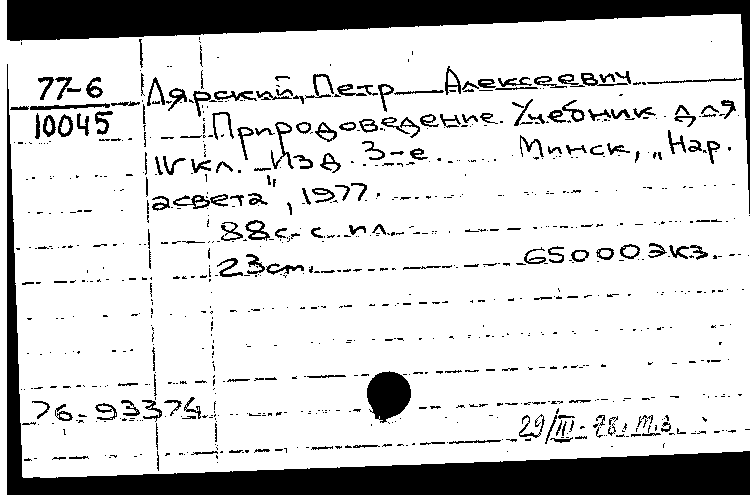 77-6
10045
Лярский, Петр Алексеевич
Природоведение. Учебник для
IV кл. Изд. 3-е. Минск, „Нар.
асвета", 1977.
88с. с ил.
23см. 65000экз.
76-93374
29/III-78. т.з.